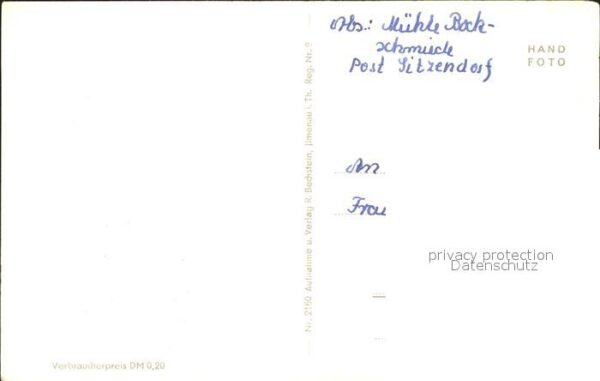 Abs.: Mühle Bock-
schmiede
Post Sitzendorf
HAND
FOTO
An
Frau
privacy protection
Datenschutz
Nr. 2160 Aufnahme u. Verlag R. Bechstein, Jlmenau i. Th. Reg. Nr. 9
Verbraucherpreis DM 0,20